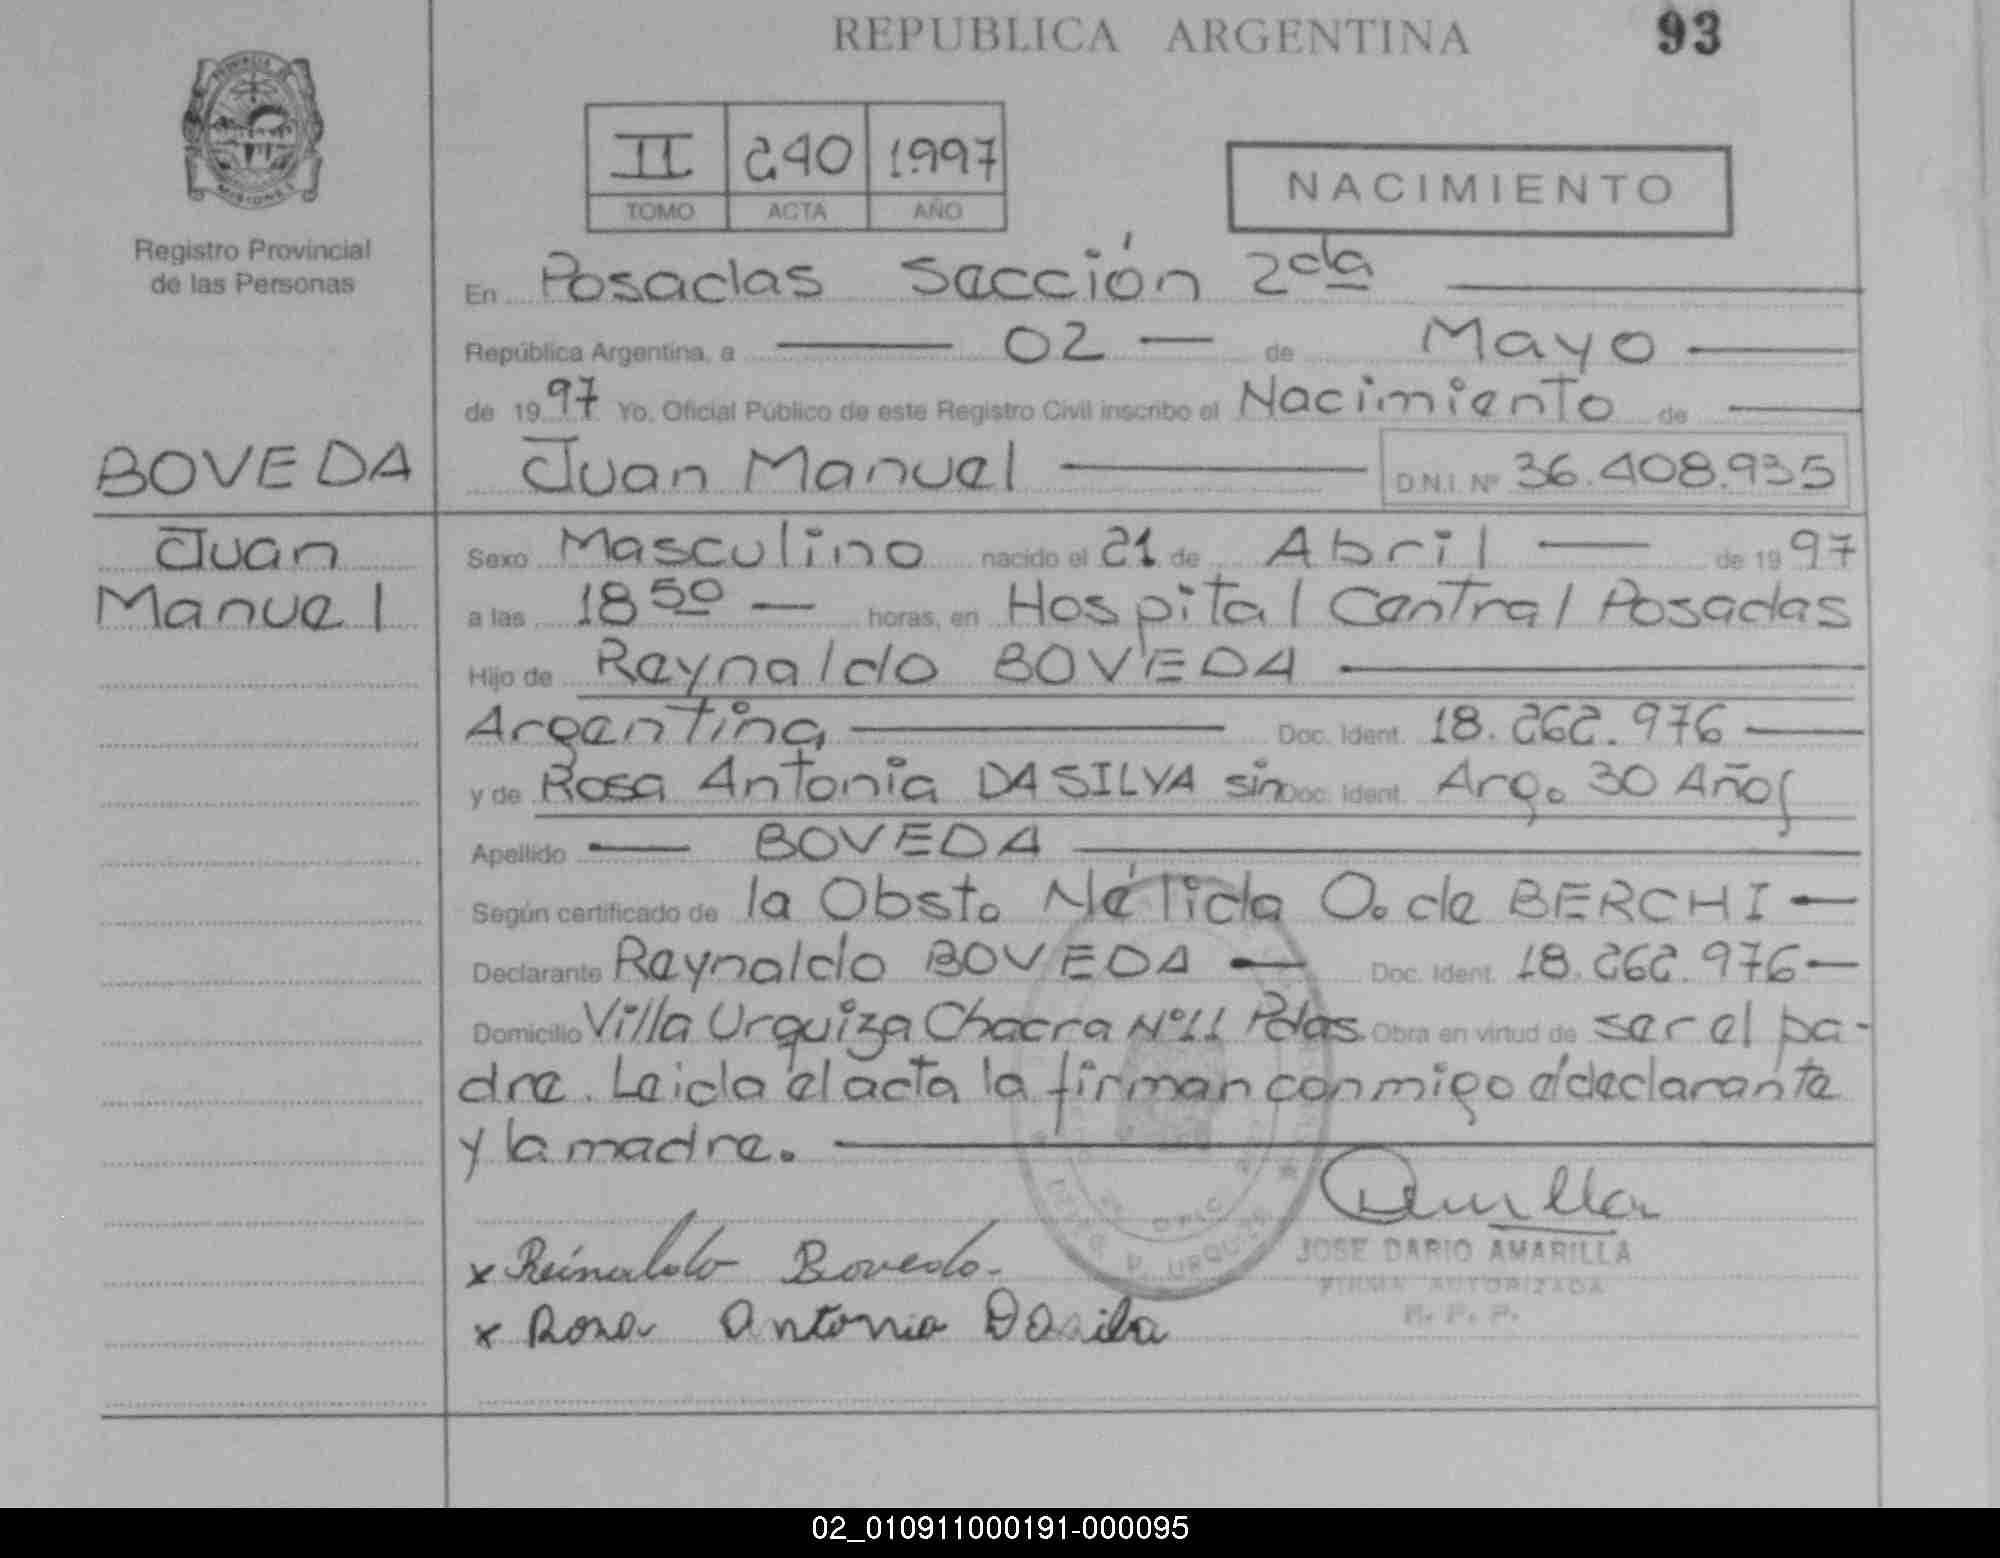 REPUBLICA ARGENTINA 93
PROVINCIA DE MISIONES
Registro Provincial
de las Personas
II 240 1.997
TOMO ACTA AÑO
NACIMIENTO
En Posadas Sección 2da
República Argentina, a 02 de Mayo
de 1997 Yo, Oficial Público de este Registro Civil inscribo el Nacimiento de
BOVEDA Juan Manuel D.N.I. Nº 36.408.935
Juan Sexo Masculino nacido el 21 de Abril de 1997
Manuel a las 18 50 horas, en Hospital Central Posadas
Hijo de Reynaldo BOVEDA
Argentina Doc. Ident. 18.262.976
y de Rosa Antonia DA SILVA sin Doc. Ident. Arg. 30 Años
Apellido BOVEDA
Según certificado de la Obst. Nélida O. de BERCHI
Declarante Reynaldo BOVEDA Doc. Ident. 18.262.976
Domicilio Villa Urquiza Chacra Nº11 Pdas. Obra en virtud de ser el pa-
dre. Leida el acta la firman conmigo el declarante
y la madre.
x Reinaldo Boveda
x Rosa Antonia Dasilva
JOSE DARIO AMARILLA
FIRMA AUTORIZADA
R. P. P.
URQUIZA
02_010911000191-000095